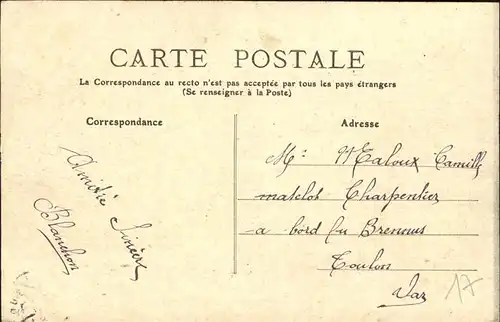 CARTE POSTALE
La Correspondance au recto n'est pas acceptée par tous les pays étrangers
(Se renseigner à la Poste)
Correspondance
Adresse
Amitié Sincère
Blanchon
Mr Maloux Camille
matelot Charpentier
a bord du Brennus
Toulon
Var
17